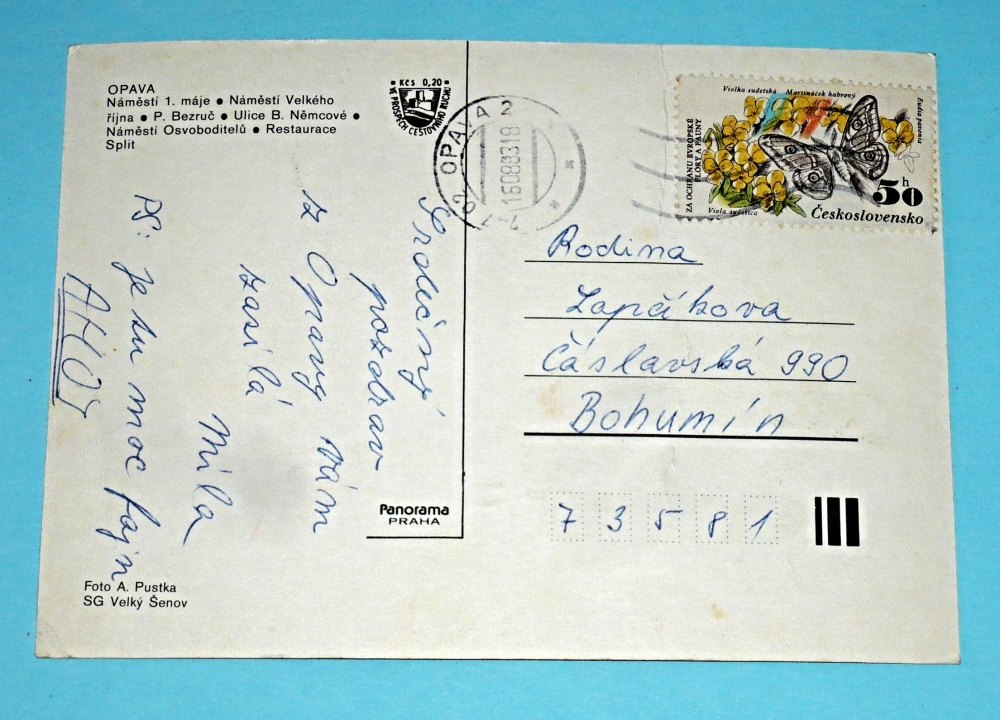 OPAVA
Náměstí 1. máje • Náměstí Velkého
října • P. Bezruč • Ulice B. Němcové •
Náměstí Osvoboditelů • Restaurace
Split
Kčs 0,20
VE PROSPĚCH CESTOVNÍHO RUCHU
OPAVA 2
16.08.83.18
Violka sudetská Martináček habrový
Eudia pavonia
ZA OCHRANU EVROPSKÉ
FLÓRY A FAUNY
Viola sudetica
50 h
Československo
Srdečný
pozdrav
z Opavy Vám
zasílá
Mila
PS: je tu moc fajn
AHOJ
Rodina
Čáslavská 990
Bohumín
7 3 5 8 1
Panorama
PRAHA
Foto A. Pustka
SG Velký Šenov